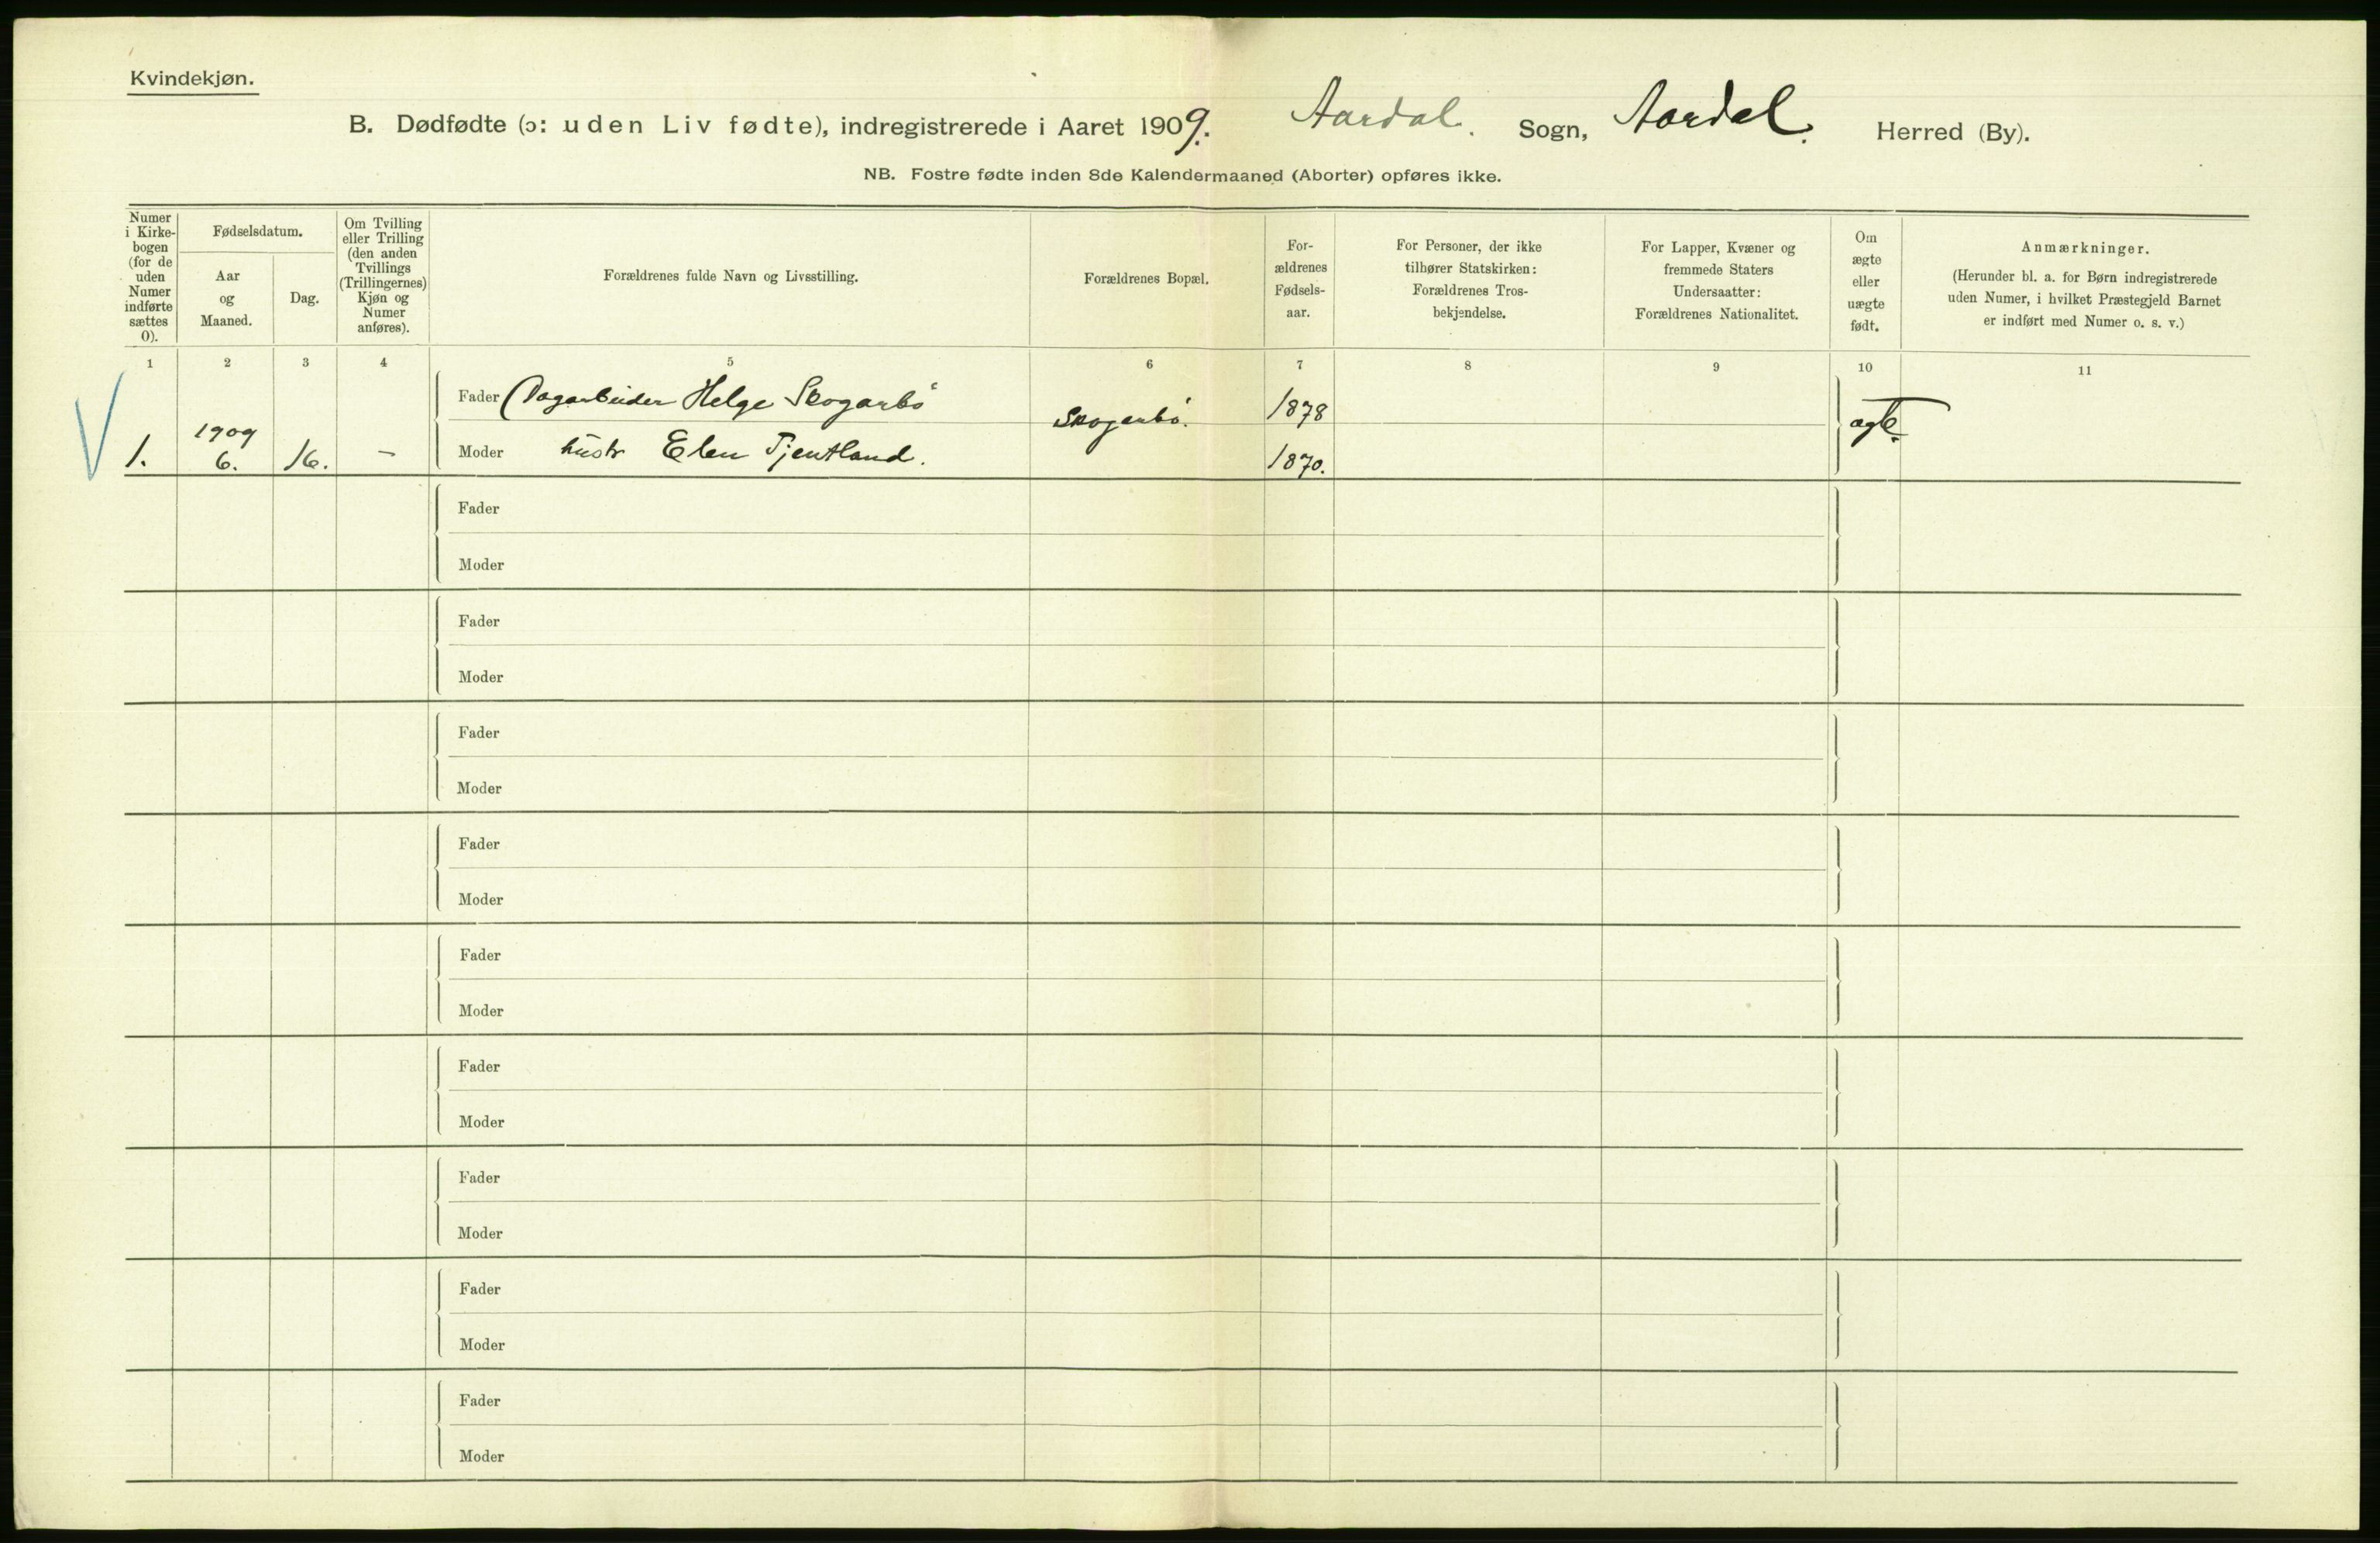 Kvindekjøn.
B. Dødfødte (ɔ: uden Liv fødte), indregistrerede i Aaret 1909. Aardal. Sogn, Aardal. Herred (By).
NB. Fostre fødte inden 8de Kalendermaaned (Aborter) opføres ikke.
Numer
i Kirke-
bogen
(for de
uden
Numer
indførte
sættes
0).
Fødselsdatum.
Aar
og
Maaned.
Dag.
Om Tvilling
eller Trilling
(den anden
Tvillings
(Trillingernes)
Kjøn og
Numer
anføres).
Forældrenes fulde Navn og Livsstilling.
Forældrenes Bopæl.
For-
ældrenes
Fødsels-
aar.
For Personer, der ikke
tilhører Statskirken:
Forældrenes Tros-
bekjendelse.
For Lapper, Kvæner og
fremmede Staters
Undersaatter:
Forældrenes Nationalitet.
Om
ægte
eller
uægte
født.
Anmærkninger.
(Herunder bl. a. for Børn indregistrerede
uden Numer, i hvilket Præstegjeld Barnet
er indført med Numer o. s. v.)
1 2 3 4 5 6 7 8 9 10 11
Fader Dagarbeider Helge Skogarbö Skogarbö. 1878 ægte.
1. 1909 6. 16. – Moder hustr Elen Tjentland. 1870.
Fader
Moder
Fader
Moder
Fader
Moder
Fader
Moder
Fader
Moder
Fader
Moder
Fader
Moder
Fader
Moder
Fader
Moder